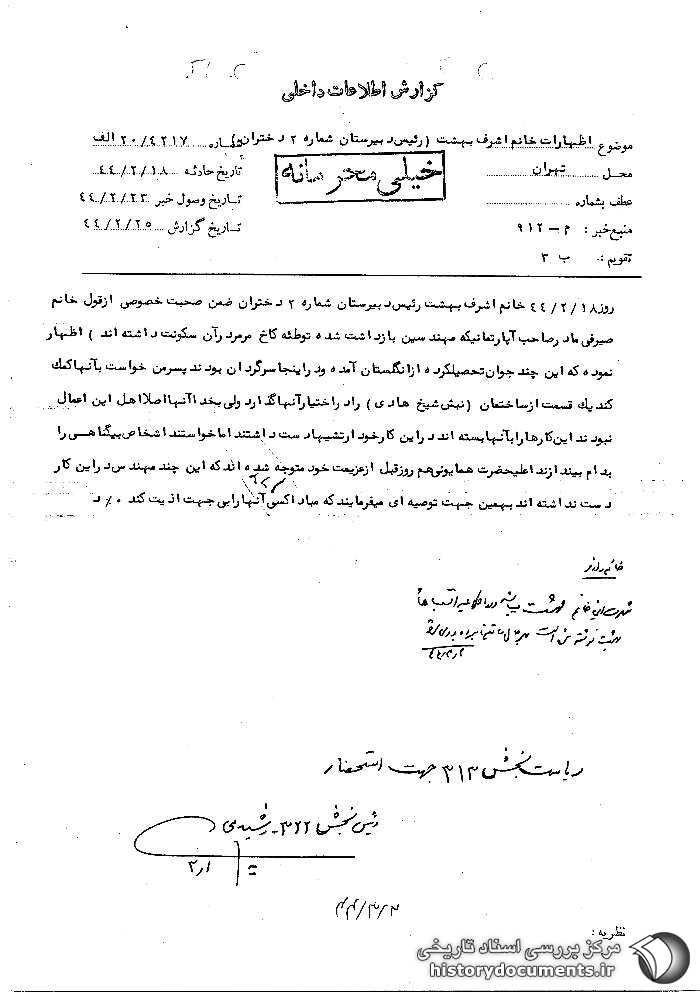 گزارش اطلاعات داخلی
موضوع اظهارات خانم اشرف بهشت (رئیس دبیرستان شماره ۲ دختران) شماره ۲۰/۴۲۱۷ الف
محل تهران تاریخ حادثه ۴۴/۲/۱۸
خیلی محرمانه
عطف بشماره تاریخ وصول خبر ۴۴/۲/۲۳
منبع خبر: م – ۹۱۲ تاریخ گزارش ۴۴/۲/۲۵
تقویم: ب ۳
روز ۴۴/۲/۱۸ خانم اشرف بهشت رئیس دبیرستان شماره ۲ دختران ضمن صحبت خصوصی از قول خانم
صیرفی مادر صاحب آپارتمانیکه مهندسین بازداشت شده توطئه کاخ مرمر در آن سکونت داشته اند) اظهار
نموده که این چند جوان تحصیلکرده از انگلستان آمده و در اینجا سرگردان بودند پسر من خواست بآنها کمک
کند یك قسمت از ساختمان (نبش شیخ هادی) را در اختیار آنها گذارد ولی بخدا آنها اصلا اهل این اعمال
نبودند این کارها را بآنها بسته اند در این کار خود ارتشیها دست داشتند اما خواستند اشخاص بیگناهی را
بدام بیندازند اعلیحضرت همایونی هم روز قبل از عزیمت خود متوجه شده اند که این چند مهندس در این کار
دست نداشته اند بهمین جهت توصیه ای میفرمایند که مبادا کسی آنها را بی جهت اذیت کند ٠/ د
ریاست بخش ۳۱۳ جهت استحضار
رئیس بخش ۳۲۲ – رشیدی
۴۴/۳/۲
نظریه:
مرکز بررسی اسناد تاریخی
historydocuments.ir